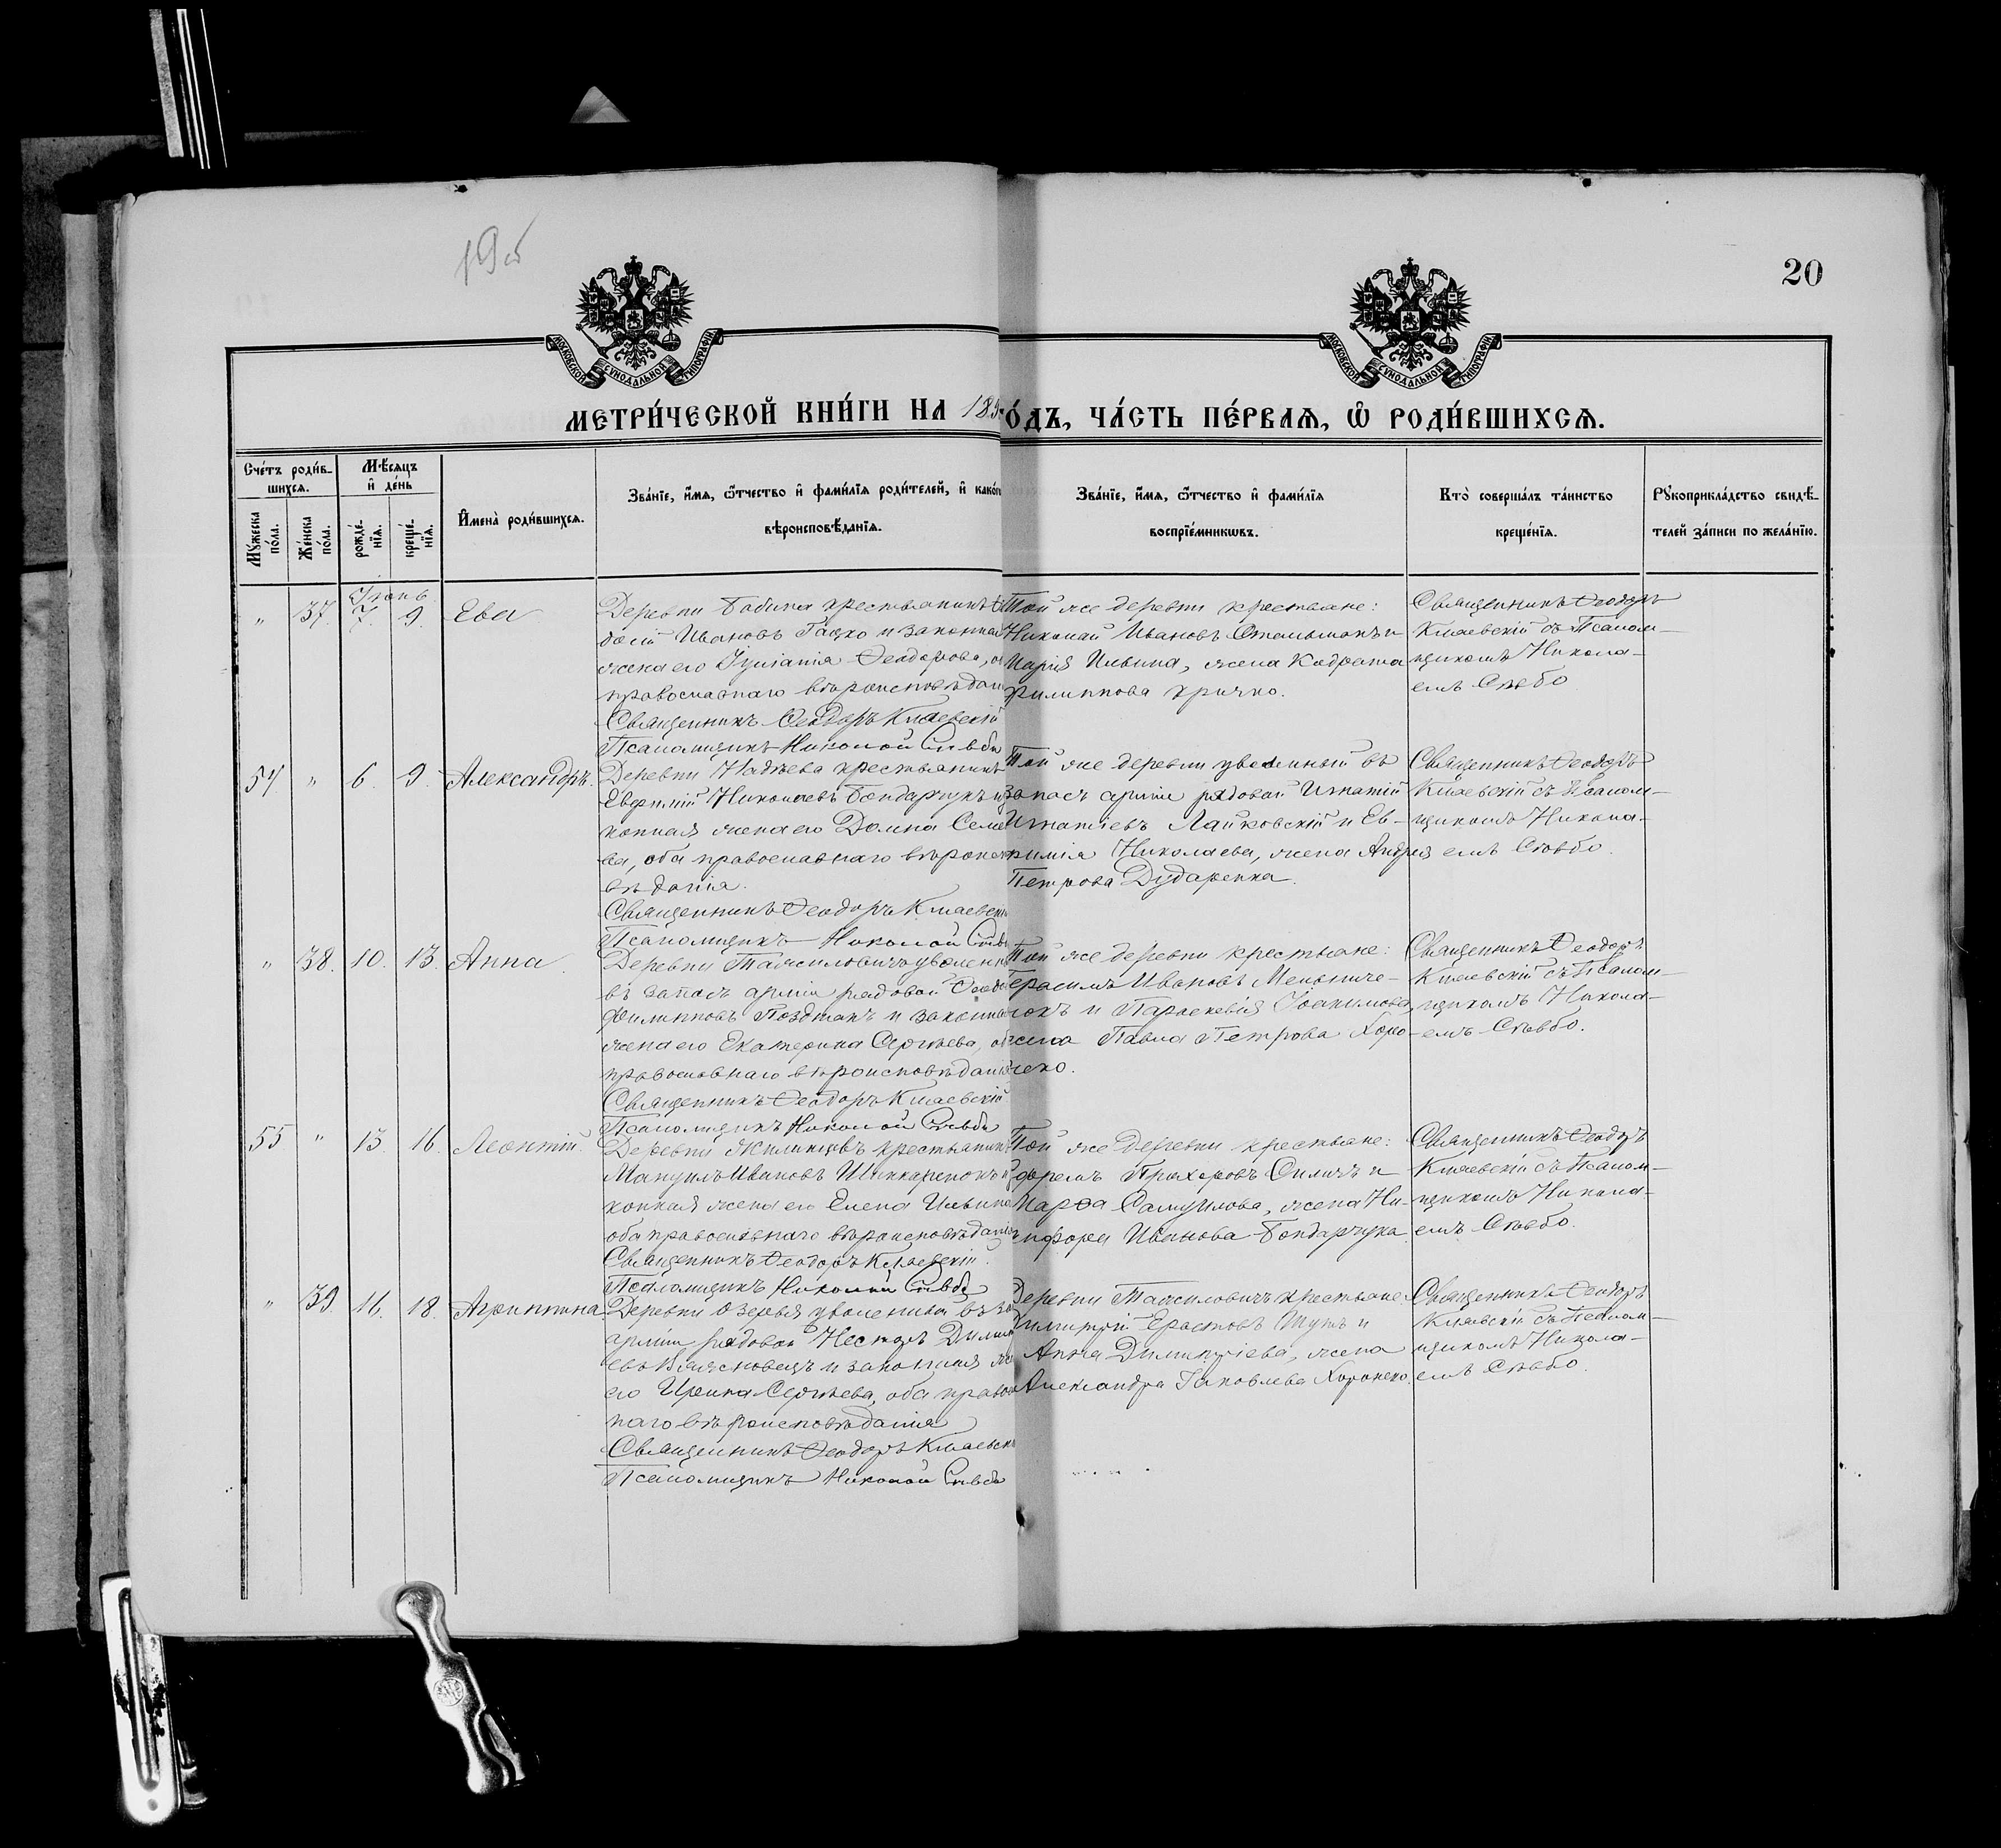 19об
20
МОСКОВСКОЙ СѴНОДАЛЬНОЙ ТИПОГРАФІИ
МОСКОВСКОЙ СѴНОДАЛЬНОЙ ТИПОГРАФІИ
МЕТРИ́ЧЕСКОЙ КНИ́ГИ НА 189
О́ДЪ, ЧА́СТЬ ПЕ́РВАѦ, Ѡ҆ РОДИ́ВШИХСѦ.
Сче́тъ роди́в-
шихсѧ.
Мꙋ́жеска по́ла.
Же́нска по́ла.
Мѣ́сѧцъ
и҆ де́нь
рожде́-нїѧ.
креще́-нїѧ.
И҆мена̀ роди́вшихсѧ.
Зва́нїе, и҆́мѧ, ѻ҆́тчество и҆ фами́лїѧ роди́телей, и҆ како́г
вѣроисповѣ́данїѧ.
Зва́нїе, и҆́мѧ, ѻ҆́тчество и҆ фами́лїѧ
воспрїе́мникѡвъ.
Кто̀ соверша́лъ та́инство
креще́нїѧ.
Рꙋкоприкла́дство свидѣ́-
телей за́писи по жела́нїю.
Іюнь
" 37. 7. 9. Ева
Деревни Бабина крестьянинъ
Ивановъ Гацко и законная
жена его Іуліанія Феодорова,
православнаго вѣроисповѣдан
Священникъ Феодоръ Кмаевскій
Псаломщикъ Николай Стьбо
Той же деревни крестьане:
Николай Ивановъ и
Марія Ильина, жена Кодрата
Филиппова Кричко.
Священникъ Феодоръ
Кмаевскій съ Псалом-
щикомъ Никола-
емъ Стьбо
54 " 6. 9. Александръ.
Деревни Надѣева крестьянинъ
Евфимій Николаевъ Бондарчукъ и
конная жена его Домна Семе
ва, оба православнаго вѣроиспо
вѣданія.
Священникъ Феодоръ Кмаевскі
Псаломщикъ Николай Стьб
Той же деревни уволенный въ
запасъ арміи рядовой Игнатій
Игнатіевъ Лайковскій и Ев-
фимія Николаева, жена Андрея
Петрова Дударенка.
Священникъ Феодоръ
Кмаевскій съ Псалом-
щикомъ Никола-
емъ Стьбо.
" 38. 10. 13. Анна.
Деревни Тажиловичъ уволенн
въ запасъ арміи рядовой Феод
Филипповъ Позднякъ и законна
жена его Екатерина Сергѣева, об
православнаго вѣроисповѣдані
Священникъ Феодоръ Кмаевскій
Псаломщикъ Николай Стьбо
Той же деревни крестьане:
Герасимъ Ивановъ Мельниче-
нокъ и Параскевія Іоакимова,
жена Павла Петрова Хоро-
неко.
Священникъ Феодоръ
Кмаевскій съ Псалом-
щикомъ Никола-
емъ Стьбо.
55 " 13. 16. Леонтій.
Деревни Жилинцевъ крестьянинъ
Мануилъ Ивановъ Шинкаренокъ и
конная жена его Елена Ильина
оба православнаго вѣроисповѣданія
Священникъ Феодоръ Кмаевскій.
Псаломщикъ Николай Стьбо
Той же деревни крестьане:
Прохоровъ Силичъ и
Марѳа Самуилова, жена Ни-
кифора Иванова Бондарчука.
Священникъ Феодоръ
Кмаевскій съ Псалом-
щикомъ Никола-
емъ Стьбо.
" 39. 16. 18. Агриппина.
Деревни Озерья уволенный въ за
арміи рядовой Несторъ Дими
евъ и законная же
его Ирина Сергѣева, оба правос
наго вѣроисповѣданія
Священникъ Феодоръ Кмаевскі
Псаломщикъ Николай Стьбо
Деревни Тажиловичъ крестьане:
Димитрій Ерастовъ Шутъ и
Анна Димитріева, жена
Александра Іаковлева Хоронеко.
Священникъ Феодоръ
Кмаевскій съ Псалом-
щикомъ Никола-
емъ Стьбо.